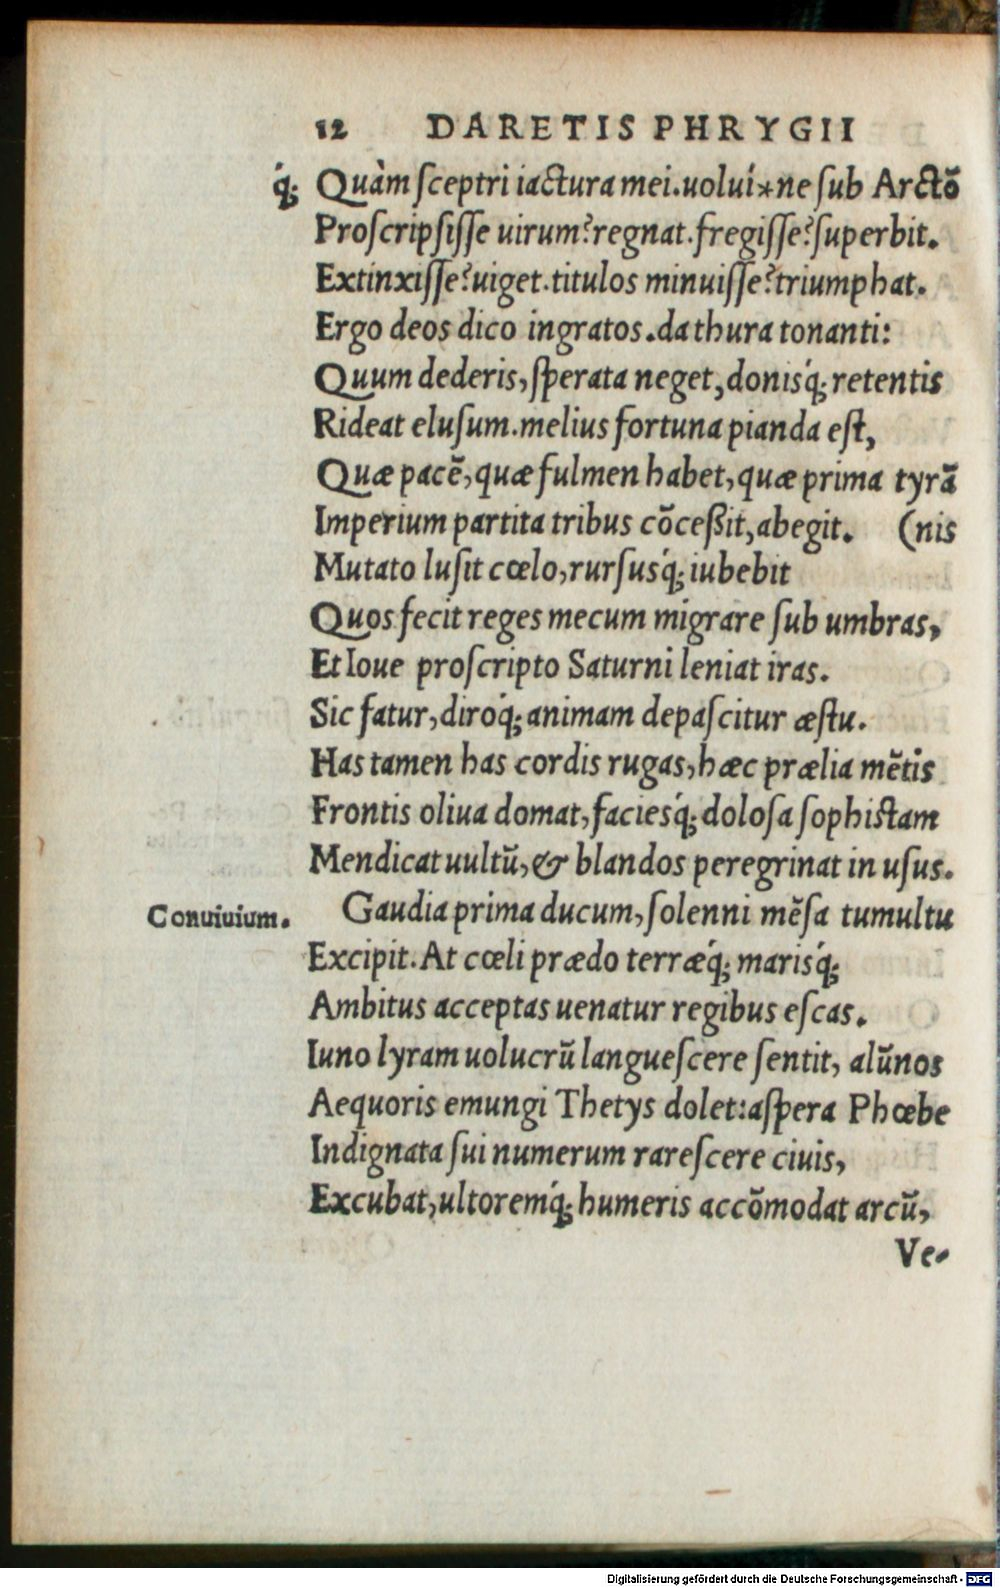 12 DARETIS PHRYGII
q́; Quàm sceptri iactura mei.uoluí*ne sub Arctō
Proscripsisse uirum?regnat.fregisse?superbit.
Extinxisse?uiget.titulos minuisse?triumphat.
Ergo deos dico ingratos.da thura tonanti:
Quum dederis, sperata neget, donisq́; retentis
Rideat elusum.melius fortuna pianda est,
Quæ pacē, quæ fulmen habet, quæ prima tyrā
Imperium partita tribus cōceßit, abegit. (nis
Mutato lusit cœlo, rursusq́; iubebit
Quos fecit reges mecum migrare sub umbras,
Et Ioue proscripto Saturni leniat iras.
Sic fatur, diroq́; animam depascitur æstu.
Has tamen has cordis rugas, hæc prælia mētis
Frontis oliua domat, faciesq́; dolosa sophistam
Mendicat uultū, & blandos peregrinat in usus.
Conuiuium. Gaudia prima ducum, solenni mēsa tumultu
Excipit. At cœli prædo terræq́; marisq́;
Ambitus acceptas uenatur regibus escas.
Iuno lyram uolucrū languescere sentit, alūnos
Aequoris emungi Thetys dolet: aspera Phœbe
Indignata sui numerum rarescere ciuis,
Excubat, ultoremq́; humeris accōmodat arcū,
Ve-
Digitalisierung gefördert durch die Deutsche Forschungsgemeinschaft - DFG